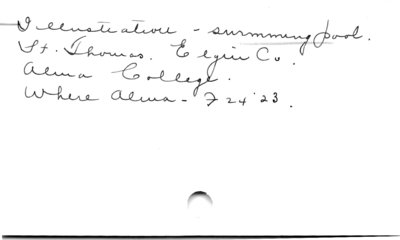 Illustration - swimming pool.
St. Thomas. Elgin Co.
Alma College.
Where Alma - F 24 '23.